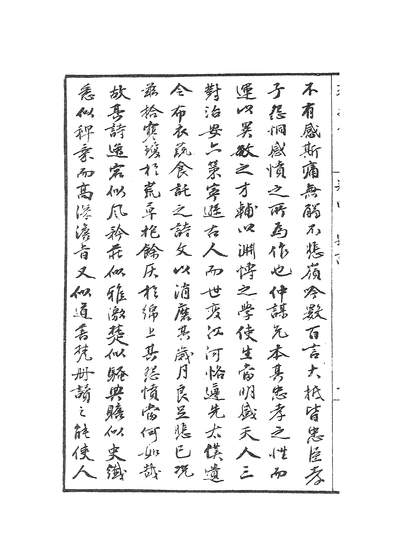 不有感斯痛無弱不悲嶺吟數百言大抵皆忠臣孝
子怨悱感憤之所為作也仲謀兄本其忠孝之性而
運以異敏之才輔以淵博之學使生當明盛天人三
對治安六策寧遜古人而世變江河怡遯先太僕遺
令布衣蔬食託之詩文以消磨其歲月良足悲已況
拾寶瑗於荒草抱餘灰於綿上其怨憤當何如哉
故其詩逸宕似風矜莊似雅激楚似騷典贍似史纖
悉似稗乘而高澹旨又似道書梵冊讀之能使人